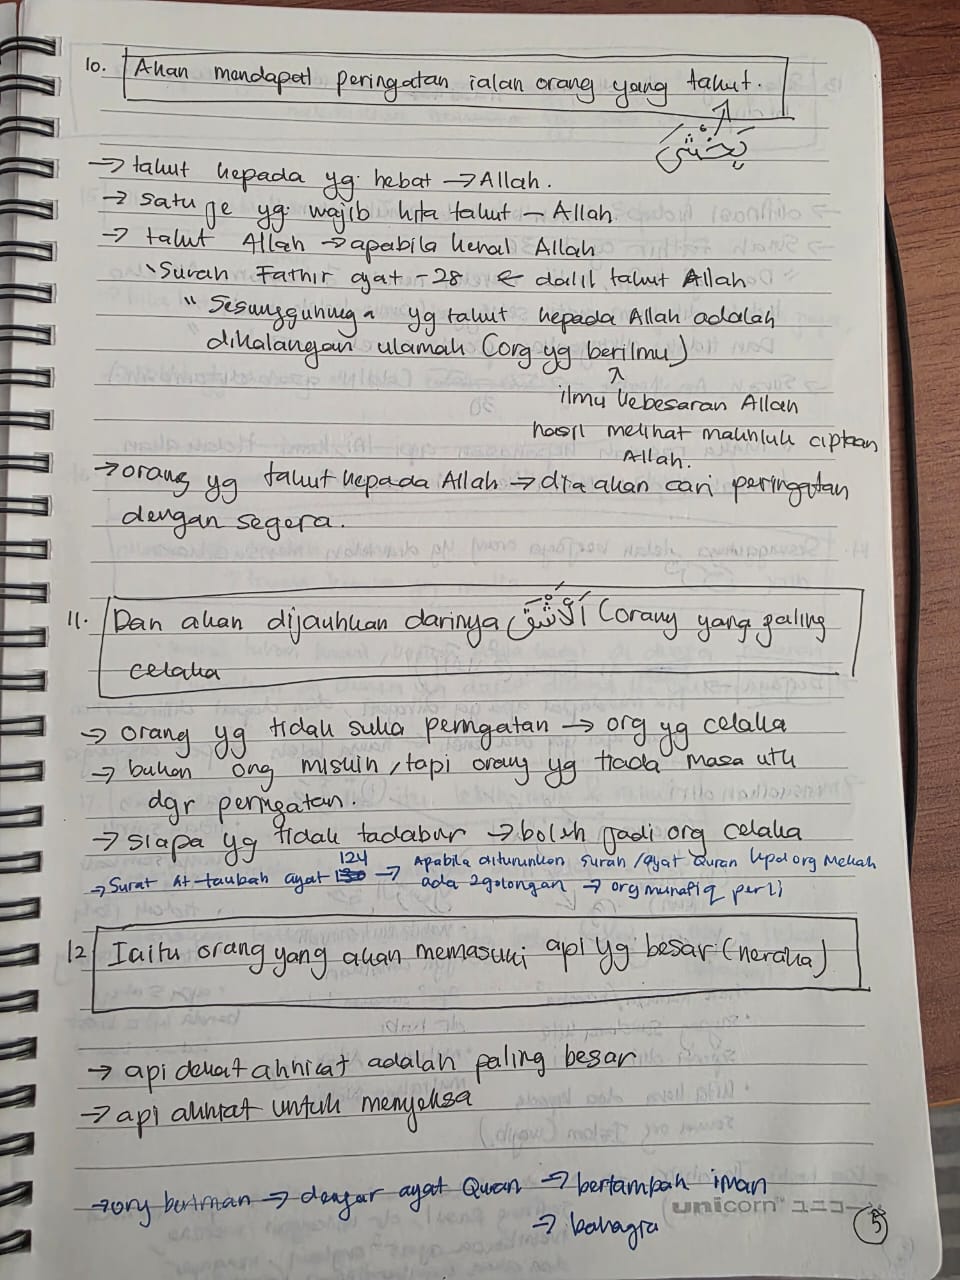 10. Akan mendapat peringatan ialah orang yang takut.
يَخْشَىٰ
→ takut kepada yg hebat → Allah.
→ satu je yg wajib kita takut - Allah.
→ takut Allah → apabila kenal Allah
Surah Fathir ayat - 28 ← dalil takut Allah
" Sesungguhnya yg takut kepada Allah adalah
dikalangan ulamak (org yg berilmu)
ilmu kebesaran Allah
hasil melihat makhluk ciptaan
Allah.
→ orang yg takut kepada Allah → dia akan cari peringatan
dengan segera.
11. Dan akan dijauhkan darinya أَشْقَى (orang yang paling
celaka
→ orang yg tidak suka peringatan → org yg celaka
→ bukan org miskin, tapi orang yg tiada masa utk
dgr peringatan.
→ siapa yg tidak tadabur → boleh jadi org celaka
→ Surat At-taubah ayat 124 → Apabila diturunkan surah/ayat Quran kpd org Mekah
ada 2 golongan → org munafiq perli
12 Iaitu orang yang akan memasuki api yg besar (neraka)
→ api dekat akhirat adalah paling besar
→ api akhirat untuk menyeksa
→ org beriman → dengar ayat Quran → bertambah iman
→ bahagia
unicorn ユニコー
5